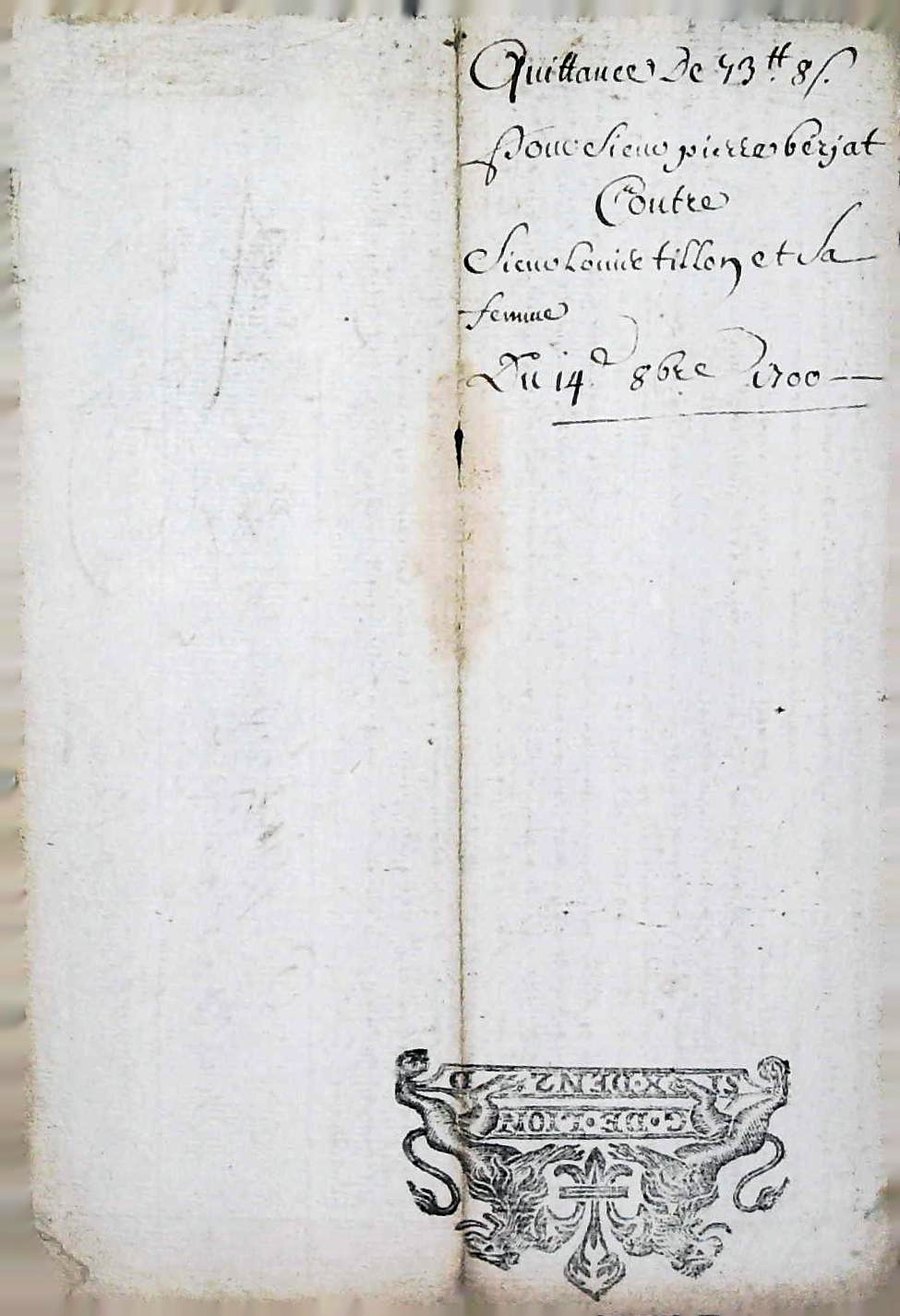 Quittance De 73ᵗᵗ 8ſ.
Pour Sieur pierre berjat
Contre
Sieur Louis tillon et Sa
femme
Du 14ᵉ 8bre 1700
SIX.DEN
G.DE.LION